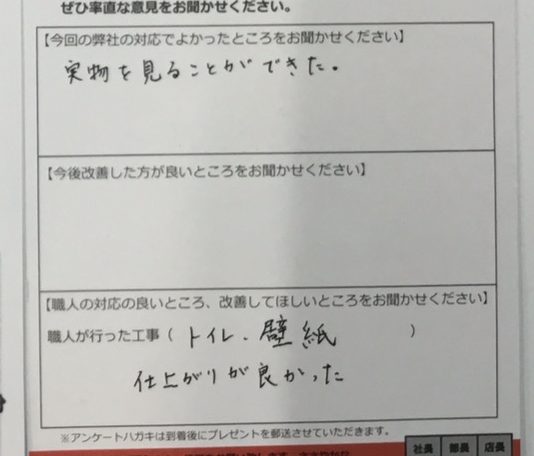 ぜひ率直な意見をお聞かせください。
【今回の弊社の対応でよかったところをお聞かせください】
実物を見ることができた。
【今後改善した方が良いところをお聞かせください】
【職人の対応の良いところ、改善してほしいところをお聞かせください】
職人が行った工事（ トイレ、壁紙 ）
仕上がりが良かった
※アンケートハガキは到着後にプレゼントを郵送させていただきます。
社長 部長 店長